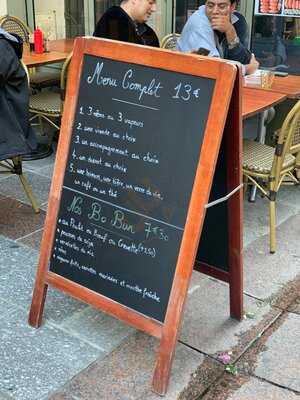 Menu Complet 13€
1. 3 nems ou 3 vapeurs
2. une viande au choix
3. un accompagnement au choix
4. un dessert au choix
5. une boisson, une bière, un verre de vin,
un café ou un thé
Nos Bo Bun 7€50
au Poulet ou Boeuf ou Crevette (+1,50)
pousses de soja
vermicelles de riz
nems
oignons frits, carottes marinées et menthe fraîche